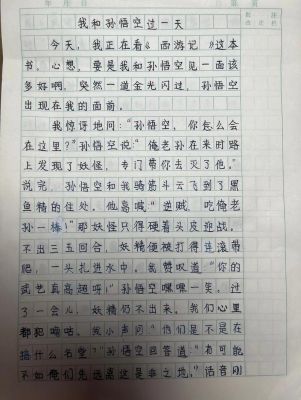 我和孙悟空过一天
今天，我正在看《西游记》这本
书，心想，要是我和孙悟空见一面该
多好啊。突然一道金光闪过，孙悟空
出现在我的面前。
我惊讶地问：“孙悟空，你怎么会
在这里？”孙悟空说：“俺老孙在来时路
上发现了妖怪，专门带你去灭了他。”
说完，孙悟空和我骑筋斗云飞到了黑
鱼精的住处。他高喊：“逆贼，吃俺老
孙一棒！”那妖怪只得硬着头皮迎战。
不出三五回合，妖精便被打得连滚带
爬，一头扎进水中。我赞叹道：“你的
武艺真高超呀！”孙悟空嘿嘿一笑。过
了一会儿，妖精仍不出来。我们心里
都犯嘀咕。我小声问：“他们是不是在
搞什么名堂？”孙悟空回答道：“有可能
不如俺们先远离这是非之地。”话音刚